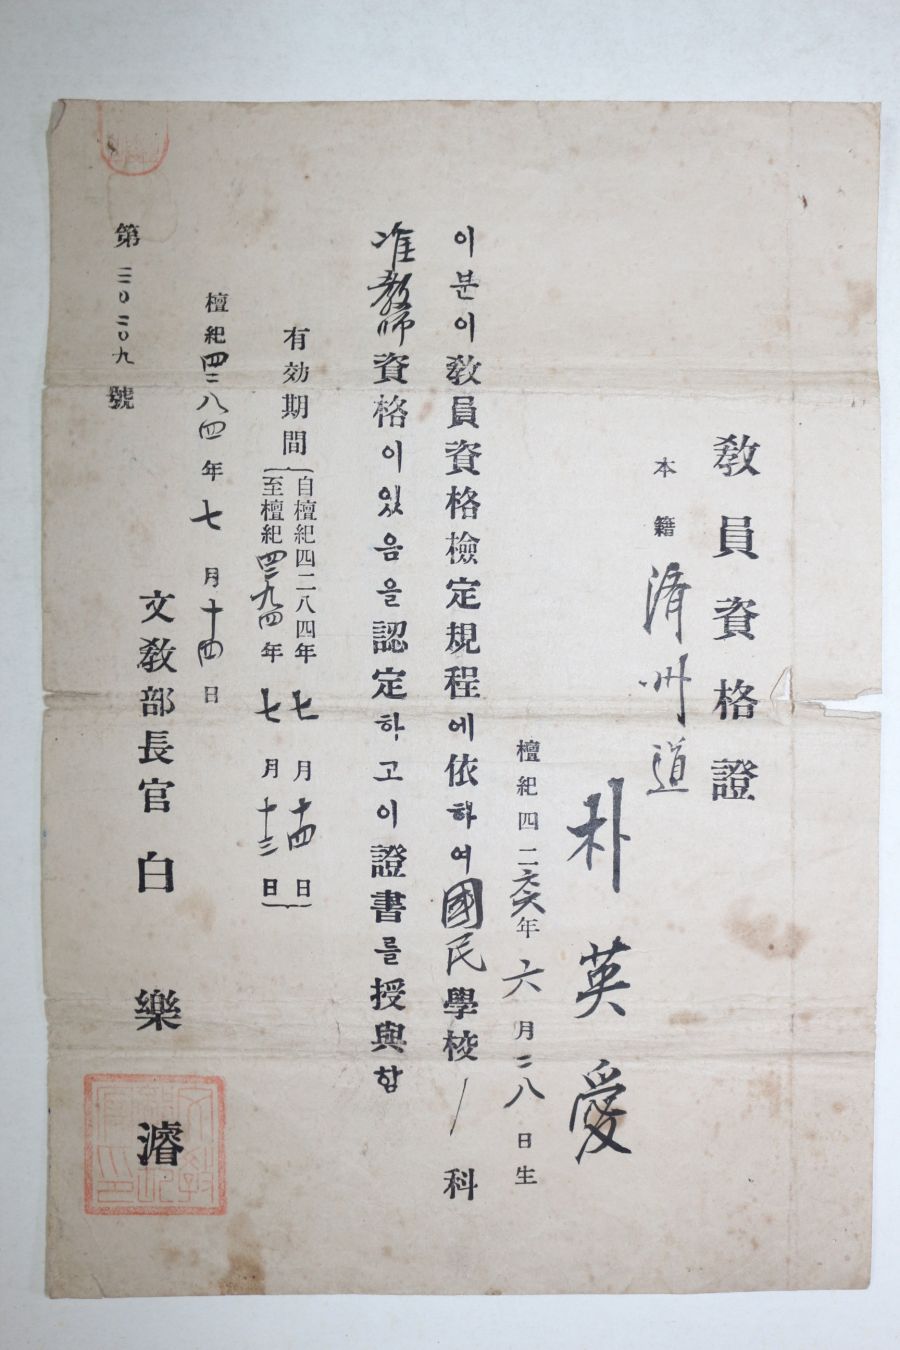 敎員資格證
本籍 濟州道
朴英愛
檀紀四二六六年六月二八日生
이분이敎員資格檢定規程에依하여國民學校/科
准敎師資格이있음을認定하고이證書를授與함
有効期間
自檀紀四二八四年七月十四日
至檀紀四二九四年七月十三日
檀紀四二八四年七月十四日
文敎部長官 白樂濬
第三〇二〇九號